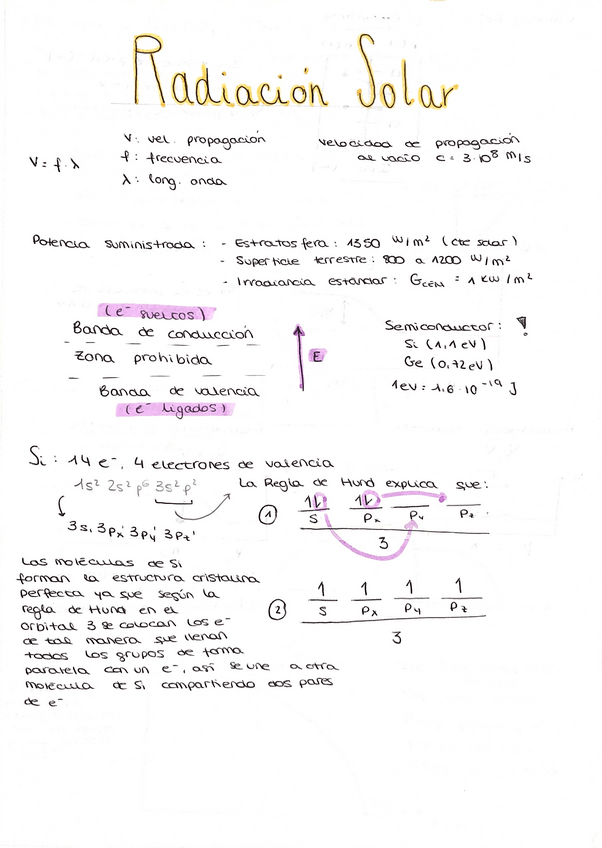 Radiación Solar
V = f·λ
V: vel. propagación
f: frecuencia
λ: long. onda
Velocidad de propagación
al vacío c = 3·10⁸ m/s
Potencia suministrada: - Estratosfera: 1350 W/m² (cte solar)
- Superficie terrestre: 800 a 1200 W/m²
- Irradiancia estándar: G_CEM = 1 kW/m²
(e⁻ sueltos)
Banda de conducción
Zona prohibida
Banda de valencia
(e⁻ ligados)
E
Semiconductor:
Si (1,1 eV)
Ge (0,72 eV)
1eV = 1,6·10⁻¹⁹ J
Si: 14 e⁻, 4 electrones de valencia
1s² 2s² p⁶ 3s² p²
3s, 3px' 3py' 3pz'
La Regla de Hund explica que:
① 1l 1l
S Px Py Pz
3
② 1 1 1 1
S Px Py Pz
3
Las moléculas de Si
forman la estructura cristalina
perfecta ya que según la
regla de Hund en el
orbital 3 se colocan los e⁻
de tal manera que llenan
todos los grupos de forma
paralela con un e⁻, así se une a otra
molécula de Si compartiendo dos pares
de e⁻